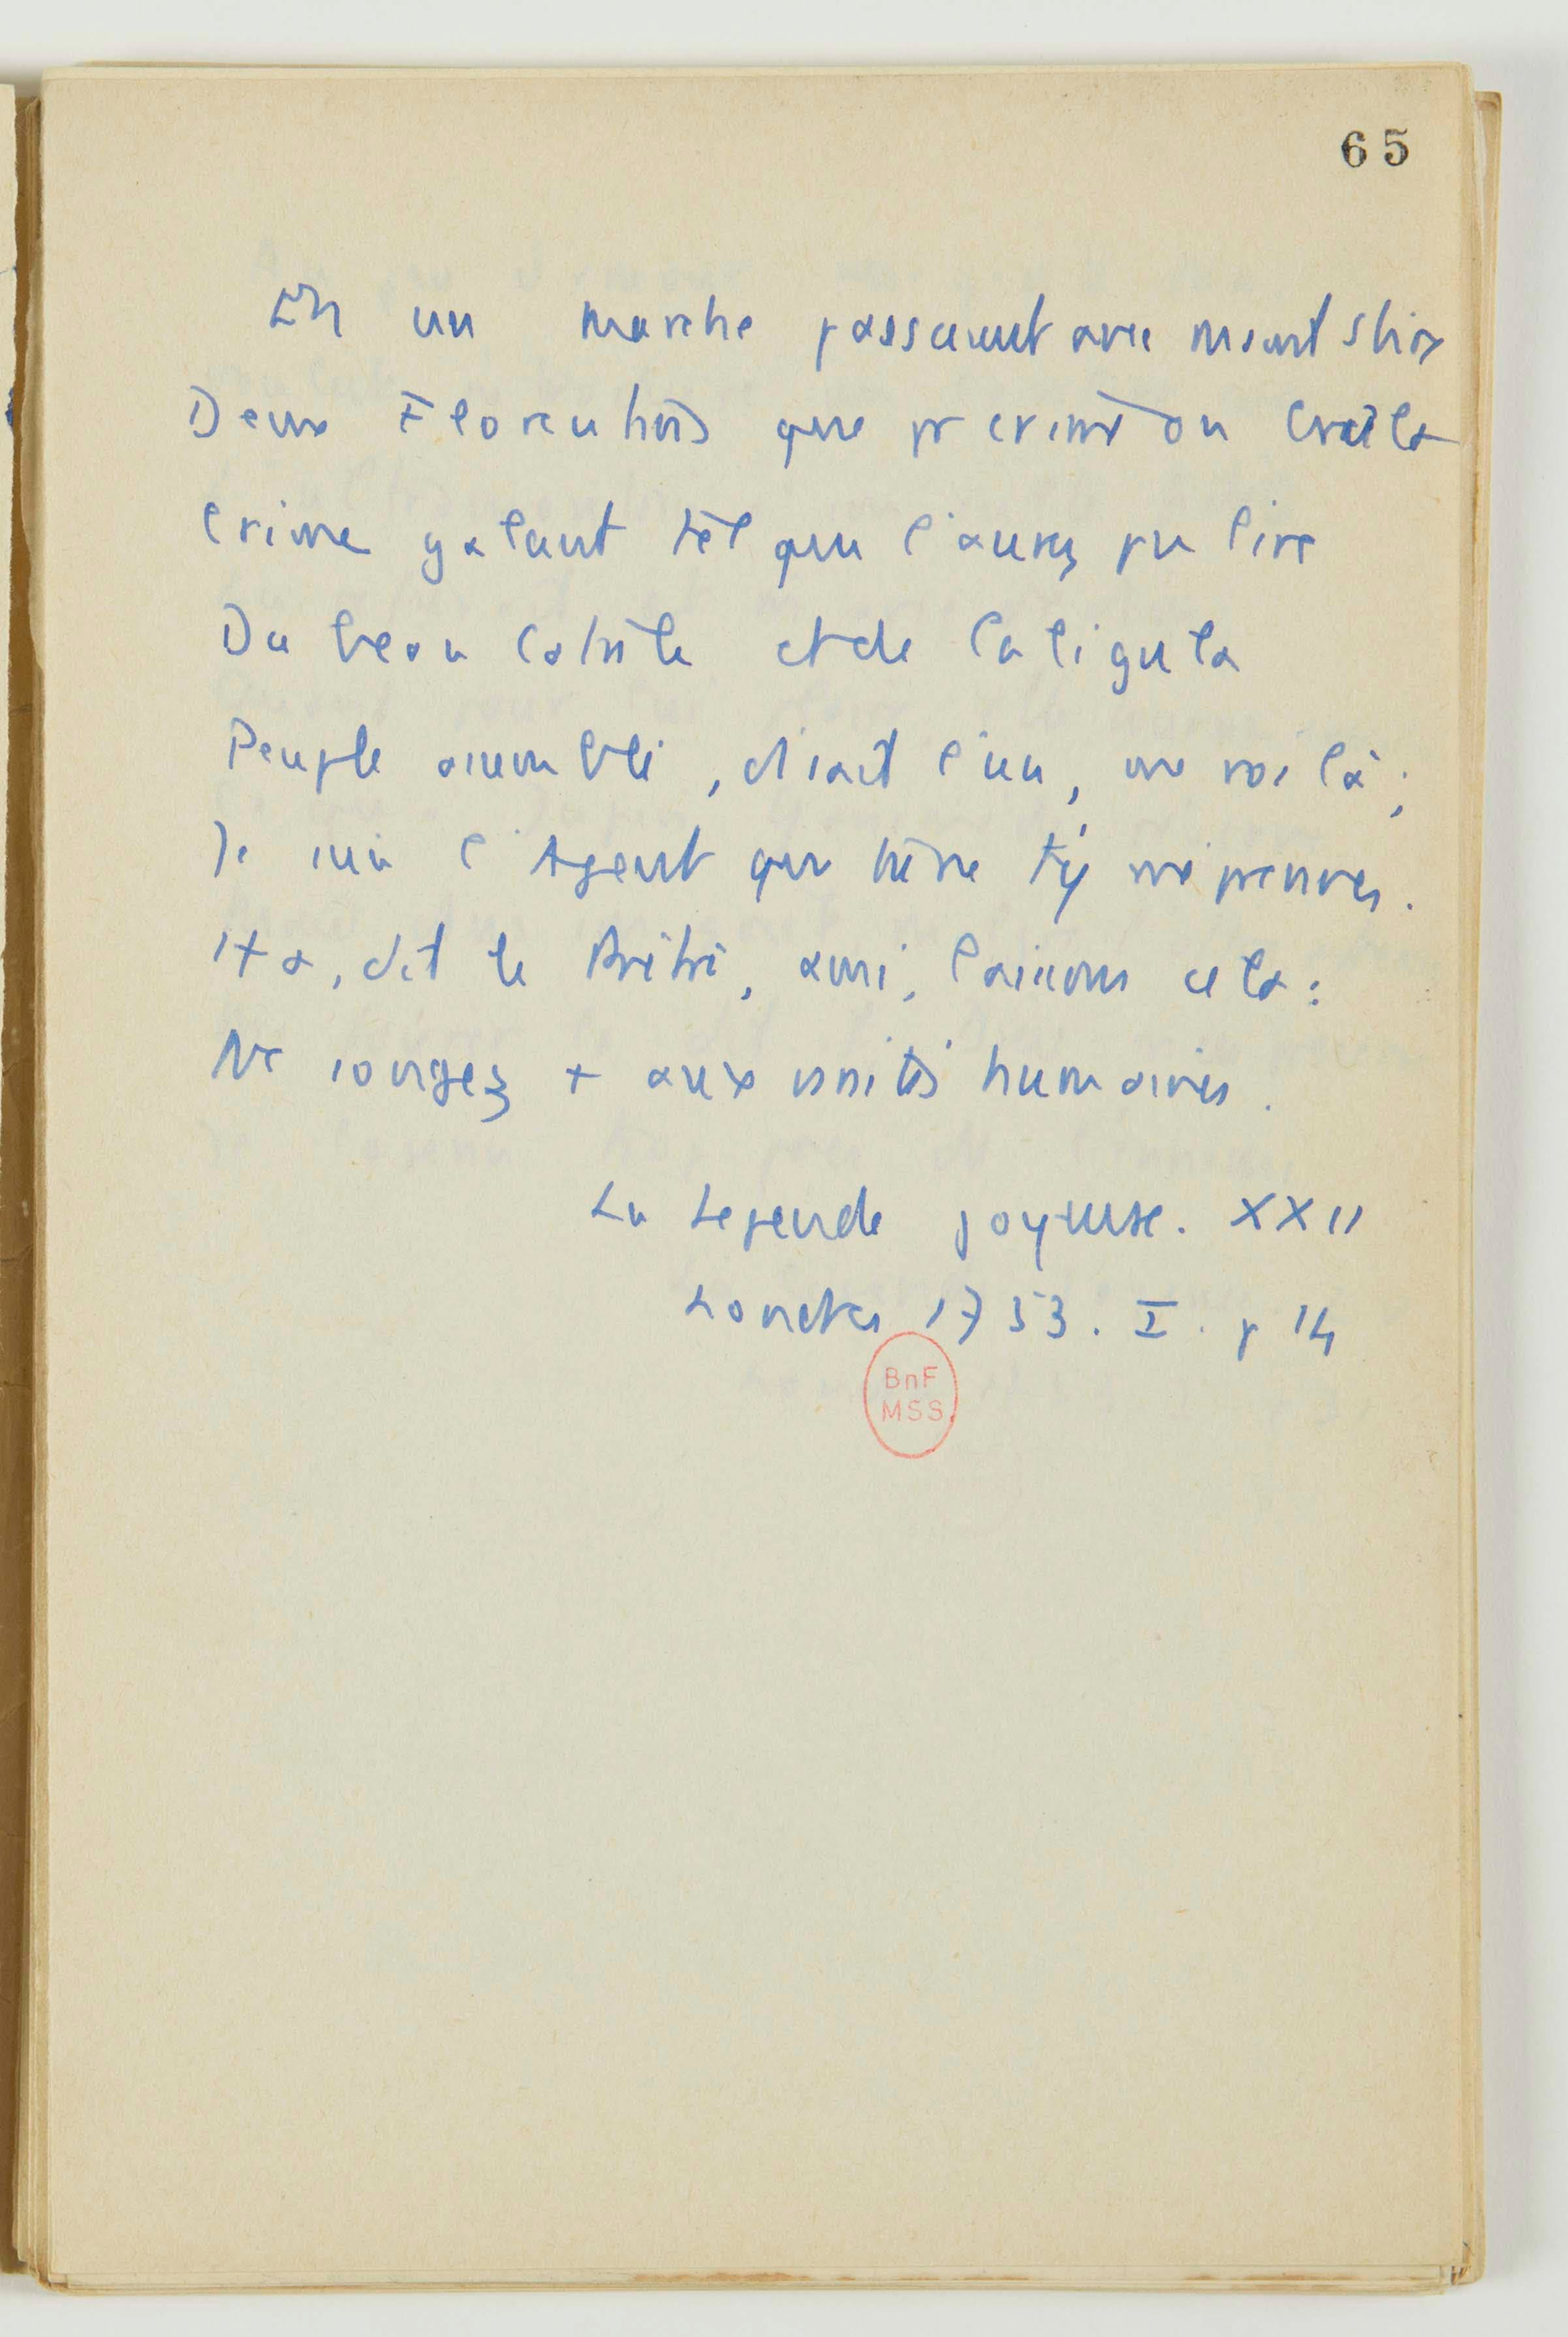 65
En un marche passaient avec maint sbire
Deux Florentins que pr crime on brûla
Crime galant tel que l'aurez pu lire
Du beau Catulle et de Caligula
Peuple assemblé, disait l'un, me voilà ;
Je suis l'Agent que ne t'y méprennes.
+ a, dit le Prêtre, ami, laissons cela :
Ne songez + aux vanités humaines.
La Legende joyeuse. XXII
Londres 1753. I. p 14
BnF
MSS